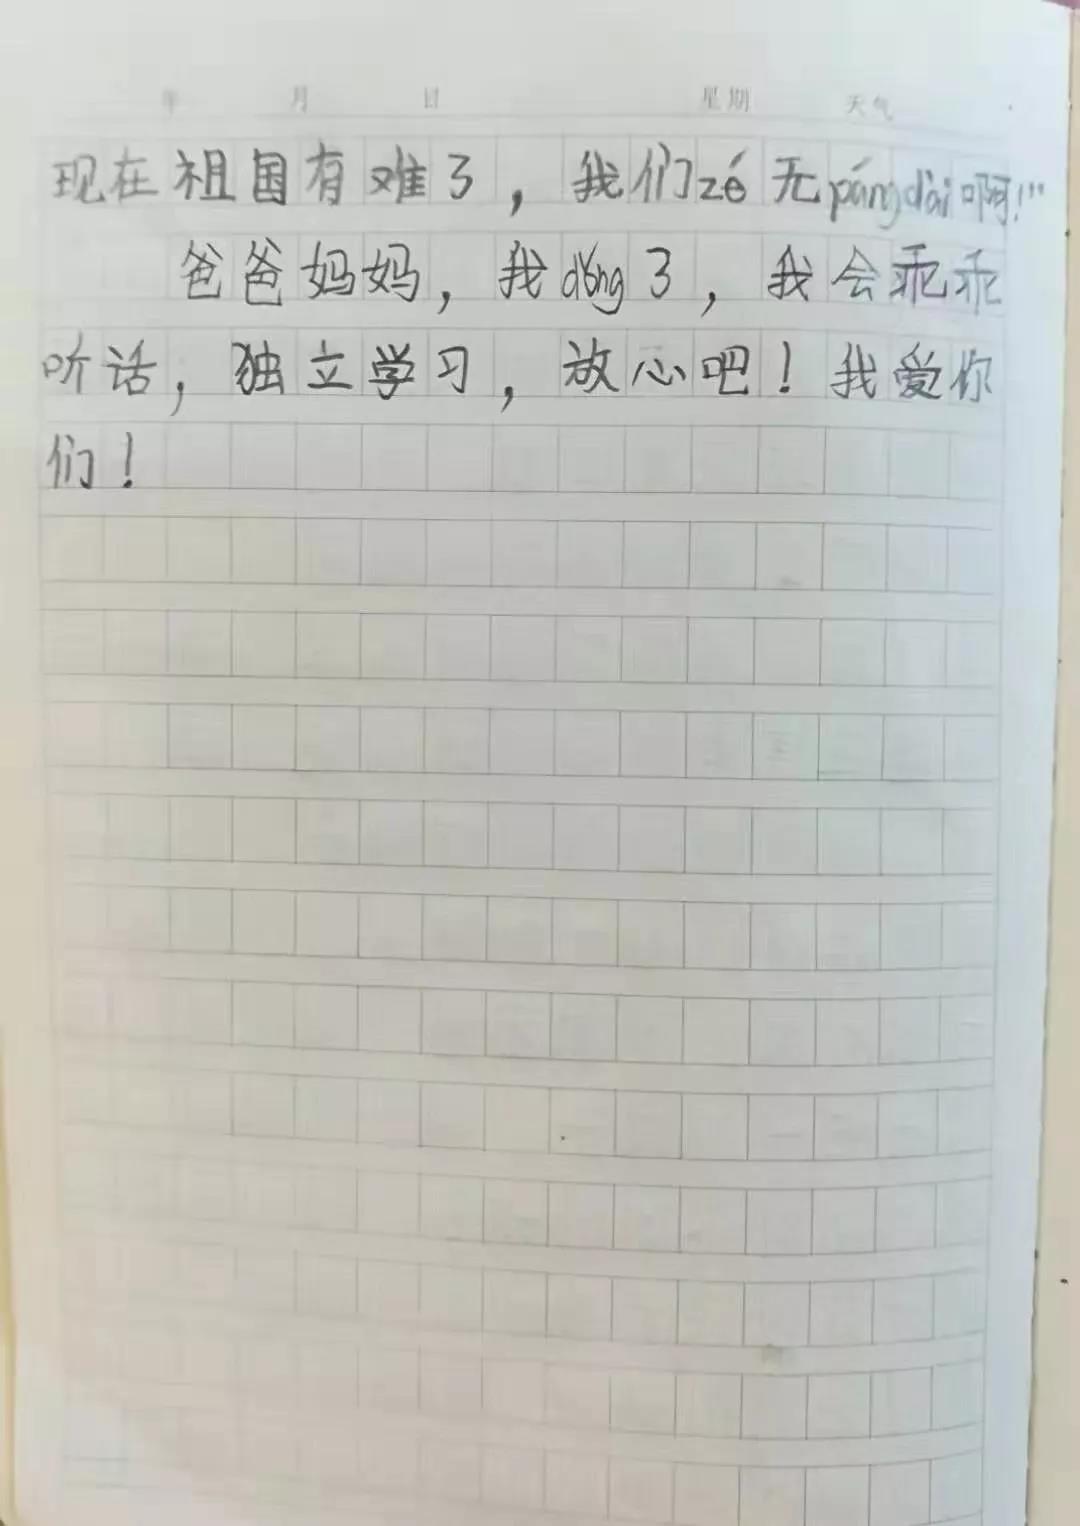 年 月 日 星期 天气
现在祖国有难了，我们zé无páng dài啊！"
爸爸妈妈，我dǒng了，我会乖乖
听话，独立学习，放心吧！我爱你
们！